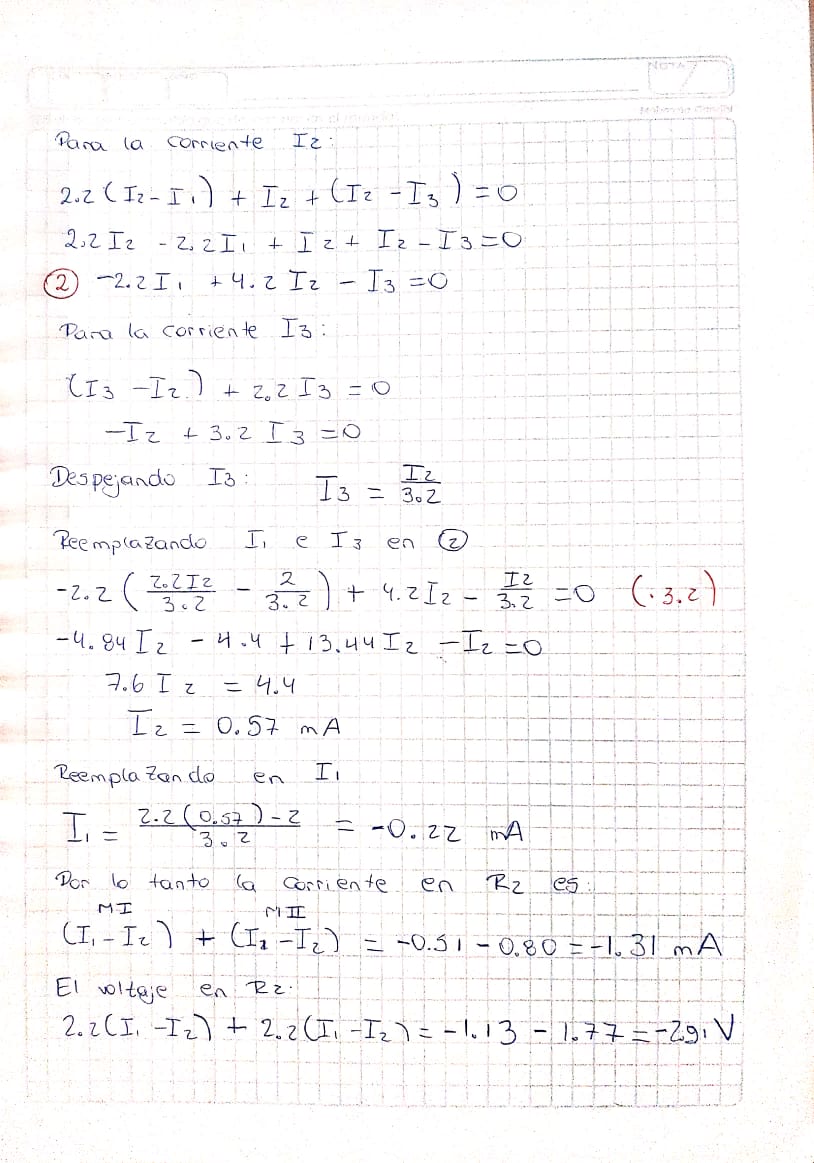 NOTA
Para la corriente I2:
2.2(I2-I1) + I2 + (I2 - I3) = 0
2.2I2 - 2.2I1 + I2 + I2 - I3 = 0
② -2.2I1 + 4.2I2 - I3 = 0
Para la corriente I3:
(I3 - I2) + 2.2I3 = 0
-I2 + 3.2I3 = 0
Despejando I3: I3 = I2/3.2
Reemplazando I1 e I3 en ②
-2.2(2.2I2/3.2 - 2/3.2) + 4.2I2 - I2/3.2 = 0 (·3.2)
-4.84I2 - 4.4 + 13.44I2 - I2 = 0
7.6I2 = 4.4
I2 = 0.57 mA
Reemplazando en I1
I1 = 2.2(0.57)-2/3.2 = -0.22 mA
Por lo tanto la corriente en R2 es:
MI MII
(I1-I2) + (I1-I2) = -0.51 - 0.80 = -1.31 mA
El voltaje en R2:
2.2(I1-I2) + 2.2(I1-I2) = -1.13 - 1.77 = -2.91 V